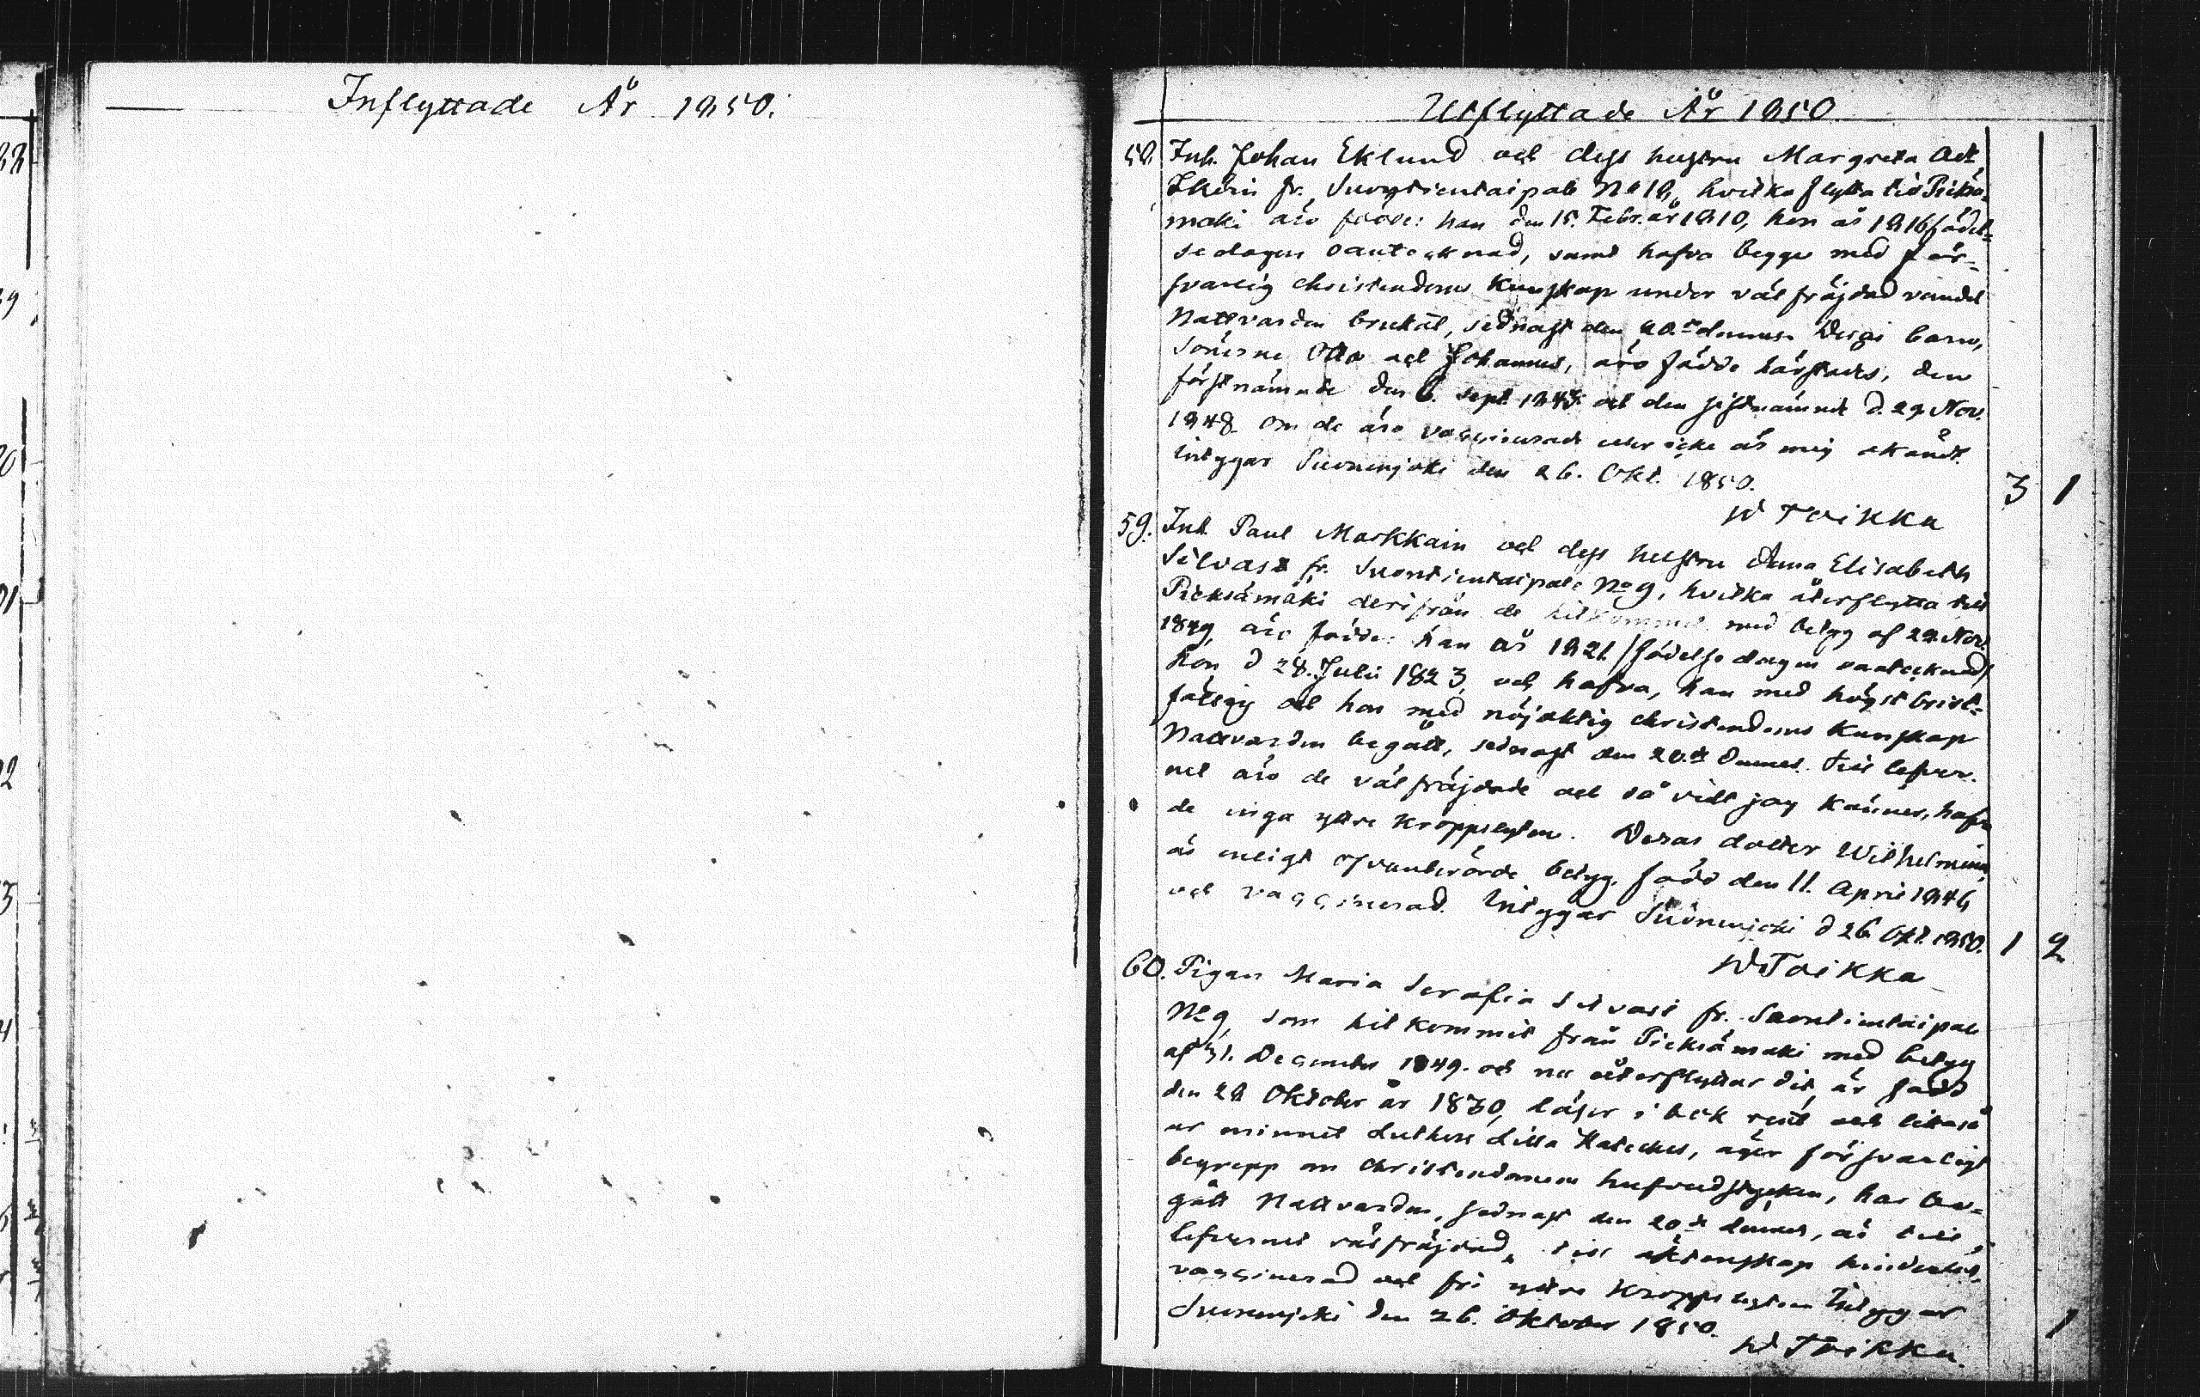 Inflyttade År 1850.
Utflyttade År 1850
58. Inh. Johan Eklund och dess hustru Margreta
fr. Suontientaipale No 18, hvilka flytta till Pieksä-
mäki äro födde: han den 15. Febr. år 1810, hon år 1816 födel-
sedagen oantecknad, samt hafva begge med för-
svarlig christendoms kunskap under välfräjdad vandel
Nattvarden brukat, sednast den 20.de dennes. Deras barn,
sönerne Otto och Johannes, äro födde härstädes, den
förstnämnde den 6. Sept. 1845 och den sistnämnde d. 29 Nov.
1848. Om de äro vaccinerade eller icke är mig okändt.
Intygar Suonenjoki den 26. Okt. 1850.
3 1
W Toikka
59. Inh. Paul Markkain och dess hustru Anna Elisabeth
Silvast fr. Suontientaipale No 9, hvilka återflytta till
Pieksämäki derifrån de hitkommit med betyg af 22 Nov.
1849, äro födde: han år 1821 /födelse dagen oantecknad/
hon d 28. Juli 1823, och hafva, han med högst brist-
fällig och hon med nöjaktig christendoms kunskap
Nattvarden begått, sednast den 20.de dennes. Till lefver-
net äro de välfräjdade och så vidt jag känner, hafva
de inga yttre kroppslyten. Deras dotter Wilhelmina,
är enligt ofvanberörde betyg född den 11. April 1846
och vaccinerad. Intygar Suonenjoki d 26 Okt. 1850.
1 2
W. Toikka
60. Pigan Maria Serafia Silvast fr. Suontientaipale
No 9, som hitkommit från Pieksämäki med betyg
af 31. December 1849. och nu återflyttar dit, är född
den 28 Oktober år 1830, läser i bok rent och likaså
ur minnet Luthers Lilla Kateches, äger försvarligt
begrepp om Christendomens hufvudstycken, har be-
gått Nattvarden, sednast den 20de dennes, är till
lefvernet välfräjdad, till äktenskap hinderlös,
vaccinerad och fri yttre kroppslyten Intygar
Suonenjoki den 26. Oktober 1850.
1
W Toikka.